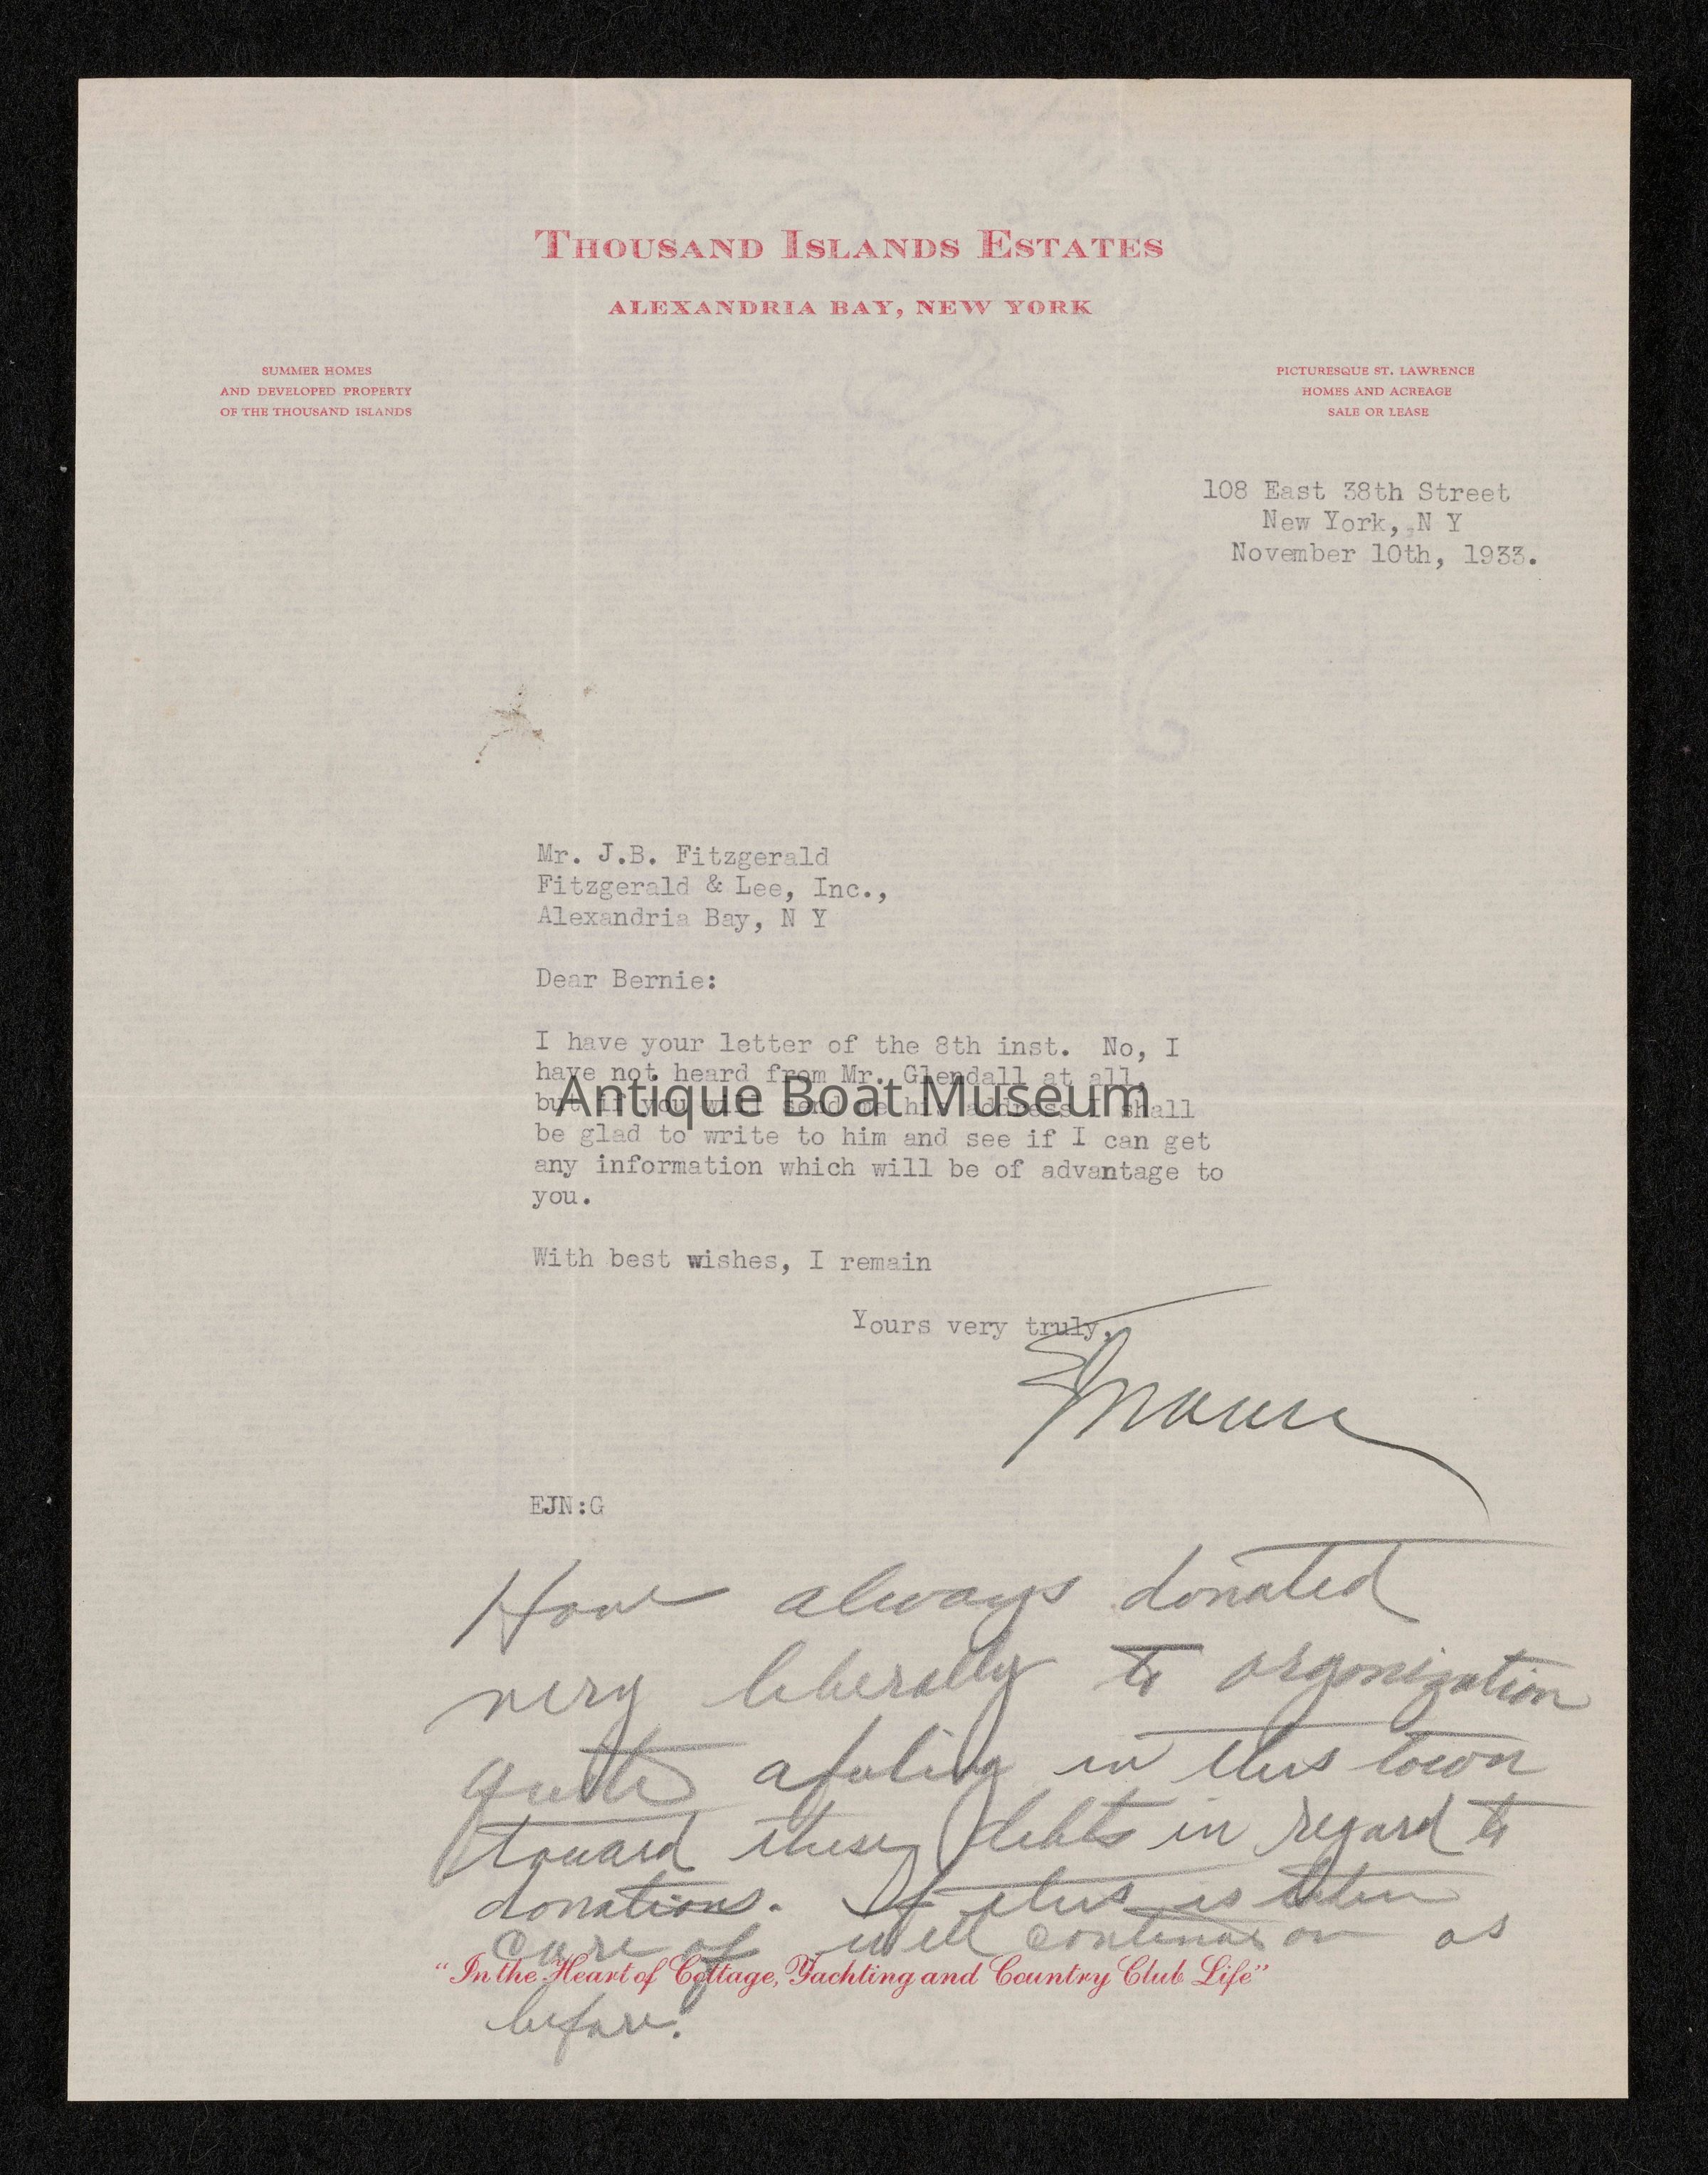 THOUSAND ISLANDS ESTATES
ALEXANDRIA BAY, NEW YORK
SUMMER HOMES
AND DEVELOPED PROPERTY
OF THE THOUSAND ISLANDS
PICTURESQUE ST. LAWRENCE
HOMES AND ACREAGE
SALE OR LEASE
108 East 38th Street
New York, N Y
November 10th, 1933.
Mr. J.B. Fitzgerald
Fitzgerald & Lee, Inc.,
Alexandria Bay, N Y
Dear Bernie:
I have your letter of the 8th inst.  No, I
have not heard from Mr. Glendall at all,
but if you will send me his address I shall
Antique Boat Museum
be glad to write to him and see if I can get
any information which will be of advantage to
you.
With best wishes, I remain
Yours very truly,
EJN:G
Have always donated
very liberally to organization
quite a feeling in this town
toward these debts in regard to
donations. If this is taken
care of will continue on as
"In the Heart of Cottage, Yachting and Country Club Life"
before.